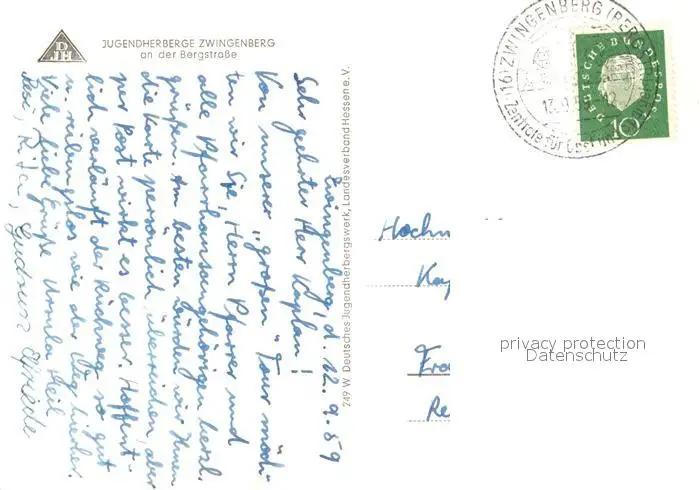 DJH
JUGENDHERBERGE ZWINGENBERG
an der Bergstraße
Zwingenberg, d. 12.9.59
Sehr geehrter Herr Kaplan!
Von unserer "großen" Tour möch-
ten wir Sie, Herrn Pfarrer und
alle Pfarrhausangehörigen herzl.
grüßen. Am besten würden wir Ihnen
die Karte persönlich überreichen, aber
per Post wirkt es besser. Hoffent-
lich verläuft der Rückweg so gut
u. reibungslos wie der Weg hierher.
Viele liebe Grüße Ursula Heil
Resi, Rita, Gudrun
249 W. Deutsches Jugendherbergswerk, Landesverband Hessen e.V.
(16) ZWINGENBERG
Zentrale für
DEUTSCHE BUNDESPOST
10
Hochw
Kap
Fra
Re
privacy protection
Datenschutz